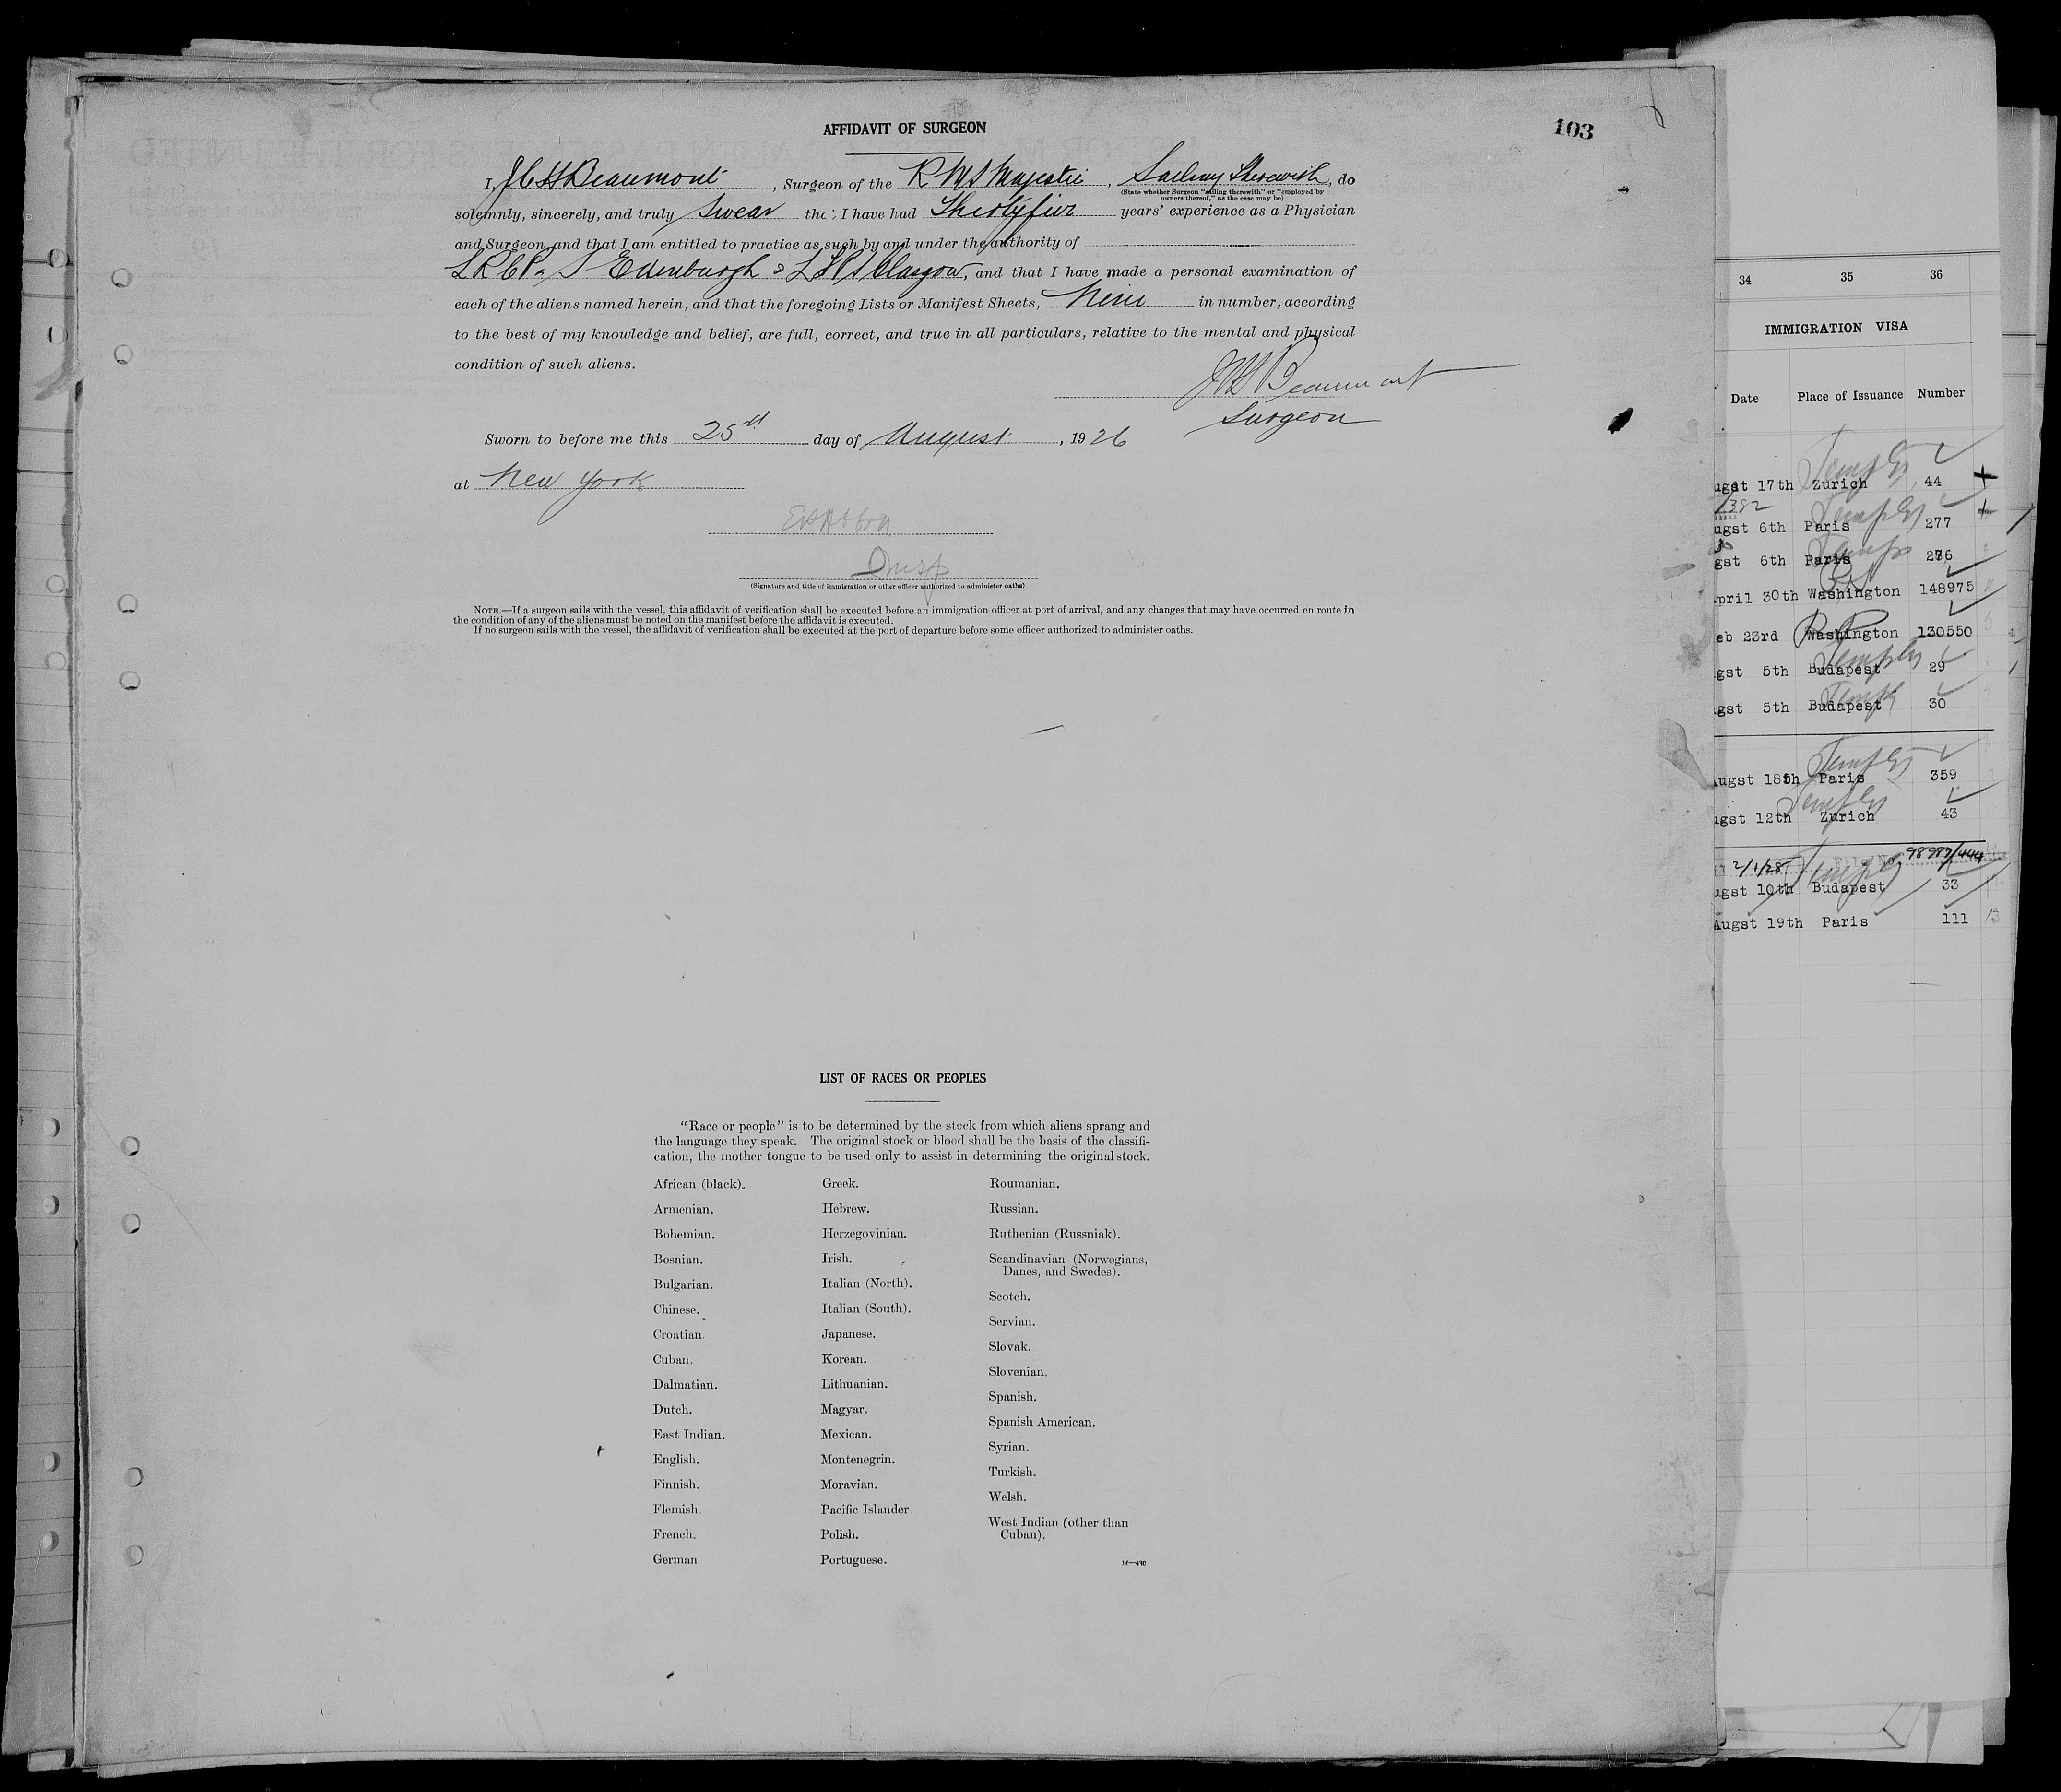 AFFIDAVIT OF SURGEON
103
I, J C H Beaumont, Surgeon of the R M S Majestic, Sailing Therewith, do
(State whether Surgeon "sailing therewith" or "employed by
owners thereof," as the case may be)
solemnly, sincerely, and truly swear that I have had Thirty five years' experience as a Physician
and Surgeon, and that I am entitled to practice as such by and under the authority of
L R C P & S Edinburgh & L F P S Glasgow, and that I have made a personal examination of
each of the aliens named herein, and that the foregoing Lists or Manifest Sheets, Nine in number, according
to the best of my knowledge and belief, are full, correct, and true in all particulars, relative to the mental and physical
condition of such aliens.
Beaumont
Surgeon
Sworn to before me this 25th day of August, 1926
at New York
Insp
(Signature and title of immigration or other officer authorized to administer oaths)
NOTE.—If a surgeon sails with the vessel, this affidavit of verification shall be executed before an immigration officer at port of arrival, and any changes that may have occurred en route in
the condition of any of the aliens must be noted on the manifest before the affidavit is executed.
If no surgeon sails with the vessel, the affidavit of verification shall be executed at the port of departure before some officer authorized to administer oaths.
LIST OF RACES OR PEOPLES
"Race or people" is to be determined by the stock from which aliens sprang and
the language they speak. The original stock or blood shall be the basis of the classifi-
cation, the mother tongue to be used only to assist in determining the original stock.
African (black).
Armenian.
Bohemian.
Bosnian.
Bulgarian.
Chinese.
Croatian.
Cuban.
Dalmatian.
Dutch.
East Indian.
English.
Finnish.
Flemish.
French.
German
Greek.
Hebrew.
Herzegovinian.
Irish.
Italian (North).
Italian (South).
Japanese.
Korean.
Lithuanian.
Magyar.
Mexican.
Montenegrin.
Moravian.
Pacific Islander.
Polish.
Portuguese.
Roumanian.
Russian.
Ruthenian (Russniak).
Scandinavian (Norwegians,
Danes, and Swedes).
Scotch.
Servian.
Slovak.
Slovenian.
Spanish.
Spanish American.
Syrian.
Turkish.
Welsh.
West Indian (other than
Cuban).
34 35 36
IMMIGRATION VISA
Date Place of Issuance Number
ugst 17th Zurich 44
ugst 6th Paris 277
gst 6th Paris 276
pril 30th Washington 148975
eb 23rd Washington 130550
gst 5th Budapest 29
gst 5th Budapest 30
Augst 18th Paris 359
ugst 12th Zurich 43
2/1/28 98987/444
ugst 10th Budapest 33
Augst 19th Paris 111 13